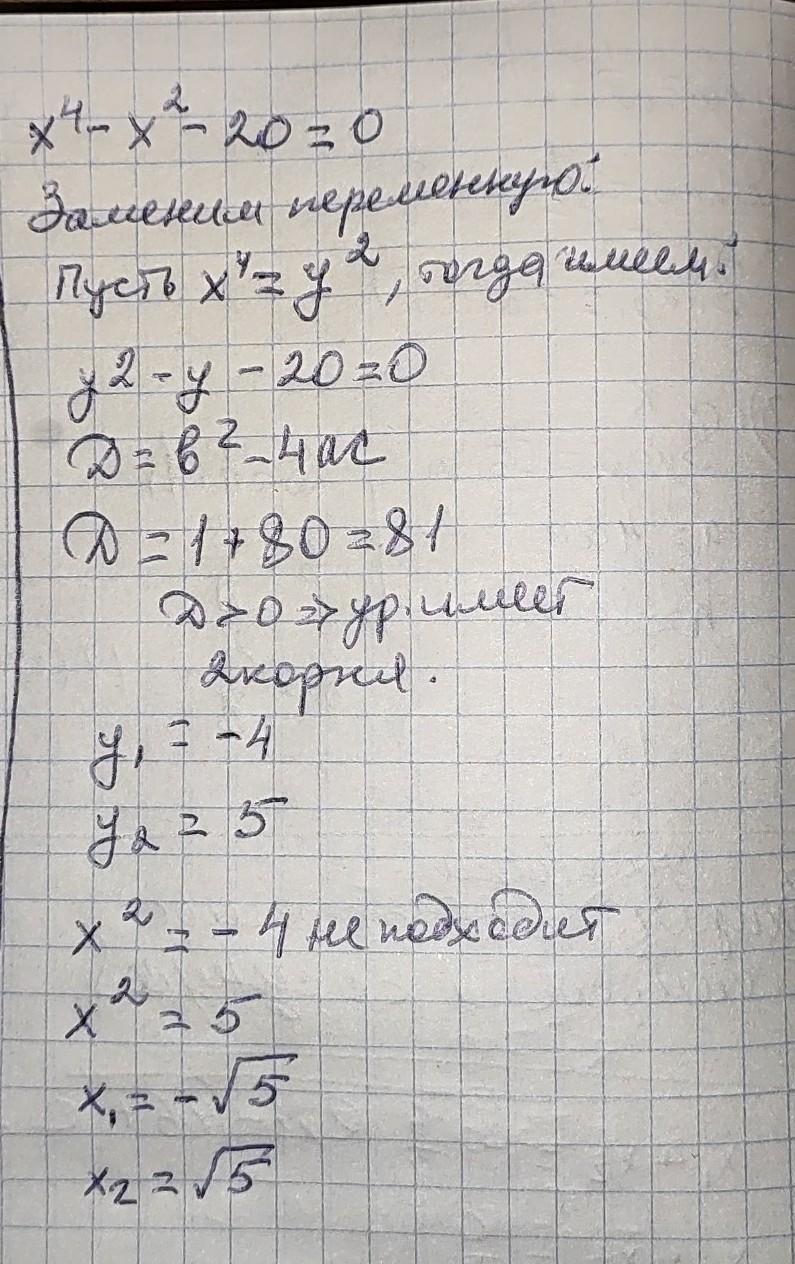 x⁴ - x² - 20 = 0
Заменим переменную:
Пусть x⁴ = y², тогда имеем:
y2 - y - 20 = 0
D = b² - 4ac
D = 1 + 80 = 81
D > 0 => ур. имеет
2 корня.
y₁ = -4
y₂ = 5
x² = -4 не подходит
x² = 5
x₁ = -√5
x₂ = √5